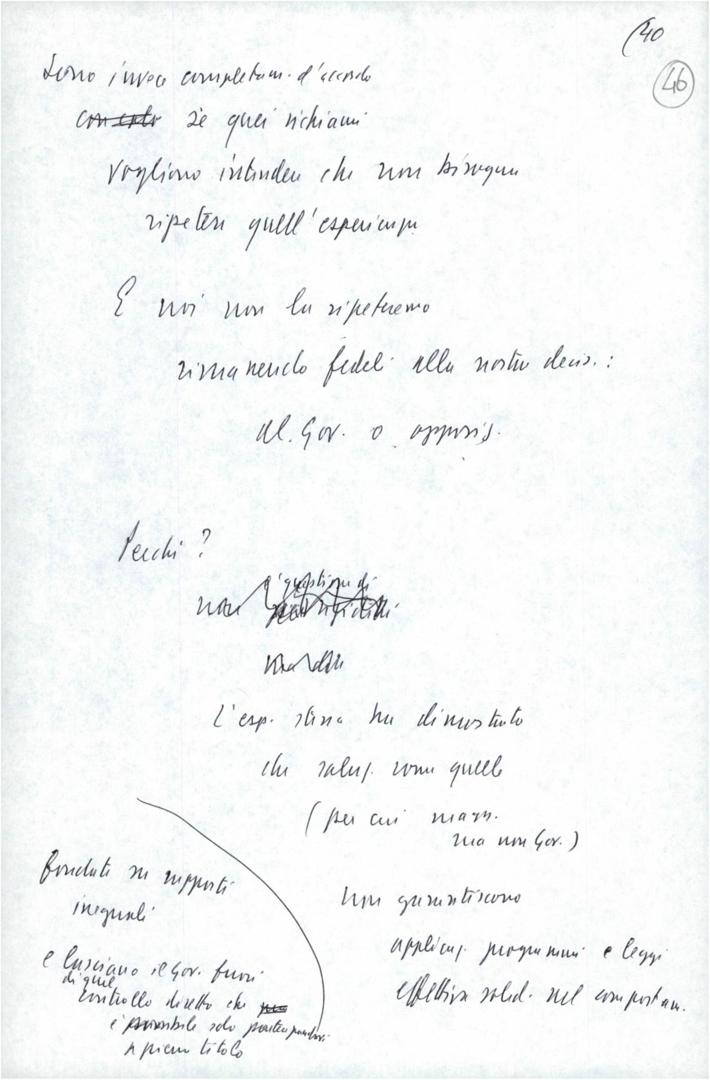 (40
46
Sono invece completam. d'accordo
se quei richiami
vogliono intendere che non bisogna
ripetere quell'esperienza
E noi non la ripeteremo
rimanendo fedeli alla nostra decis.:
al Gov. o opposiz.
Perché?
non
è questione di
L'esp. stessa ha dimostrato
che soluz. come quelle
(per cui magg.
ma non Gov.)
non garantiscono
applicaz. programmi e leggi
effettiva solid. nel comportam.
fondate su rapporti
ineguali
e lasciano il Gov. fuori
di quel
controllo diretto che
è possibile solo
a pieno titolo